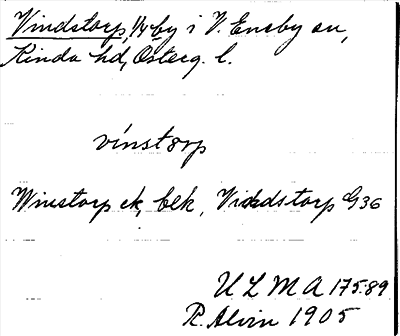 Vindstorp, 1/4 by i V. Eneby sn,
Kinda hd, Österg. l.
vínstorp
Winstorp ek, bek, Vindstorp G36
ULMA 175:89
R. Alvin 1905